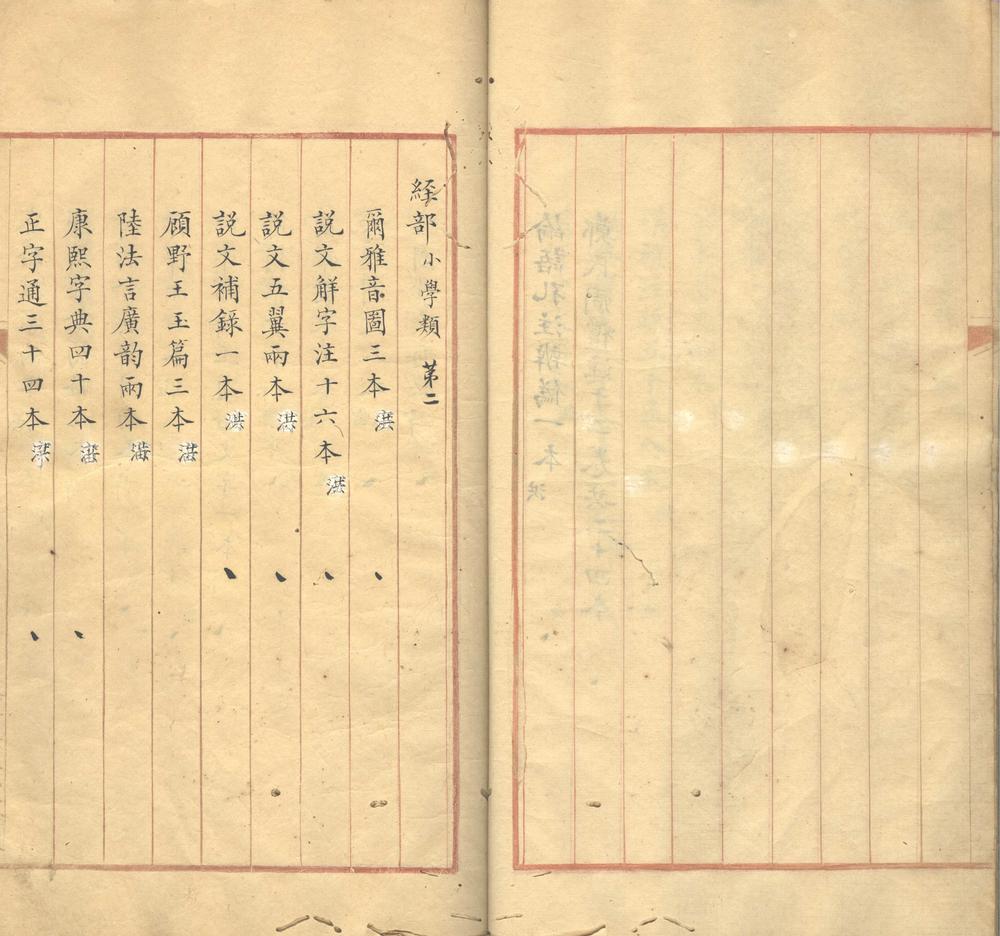 經部 小學類 第二
爾雅音圖三本 洪
說文解字注十六本 洪
說文五翼兩本 洪
說文補錄一本 洪
顧野王玉篇三本 洪
陸法言廣韵兩本 洪
康熙字典四十本 洪
正字通三十四本 洪